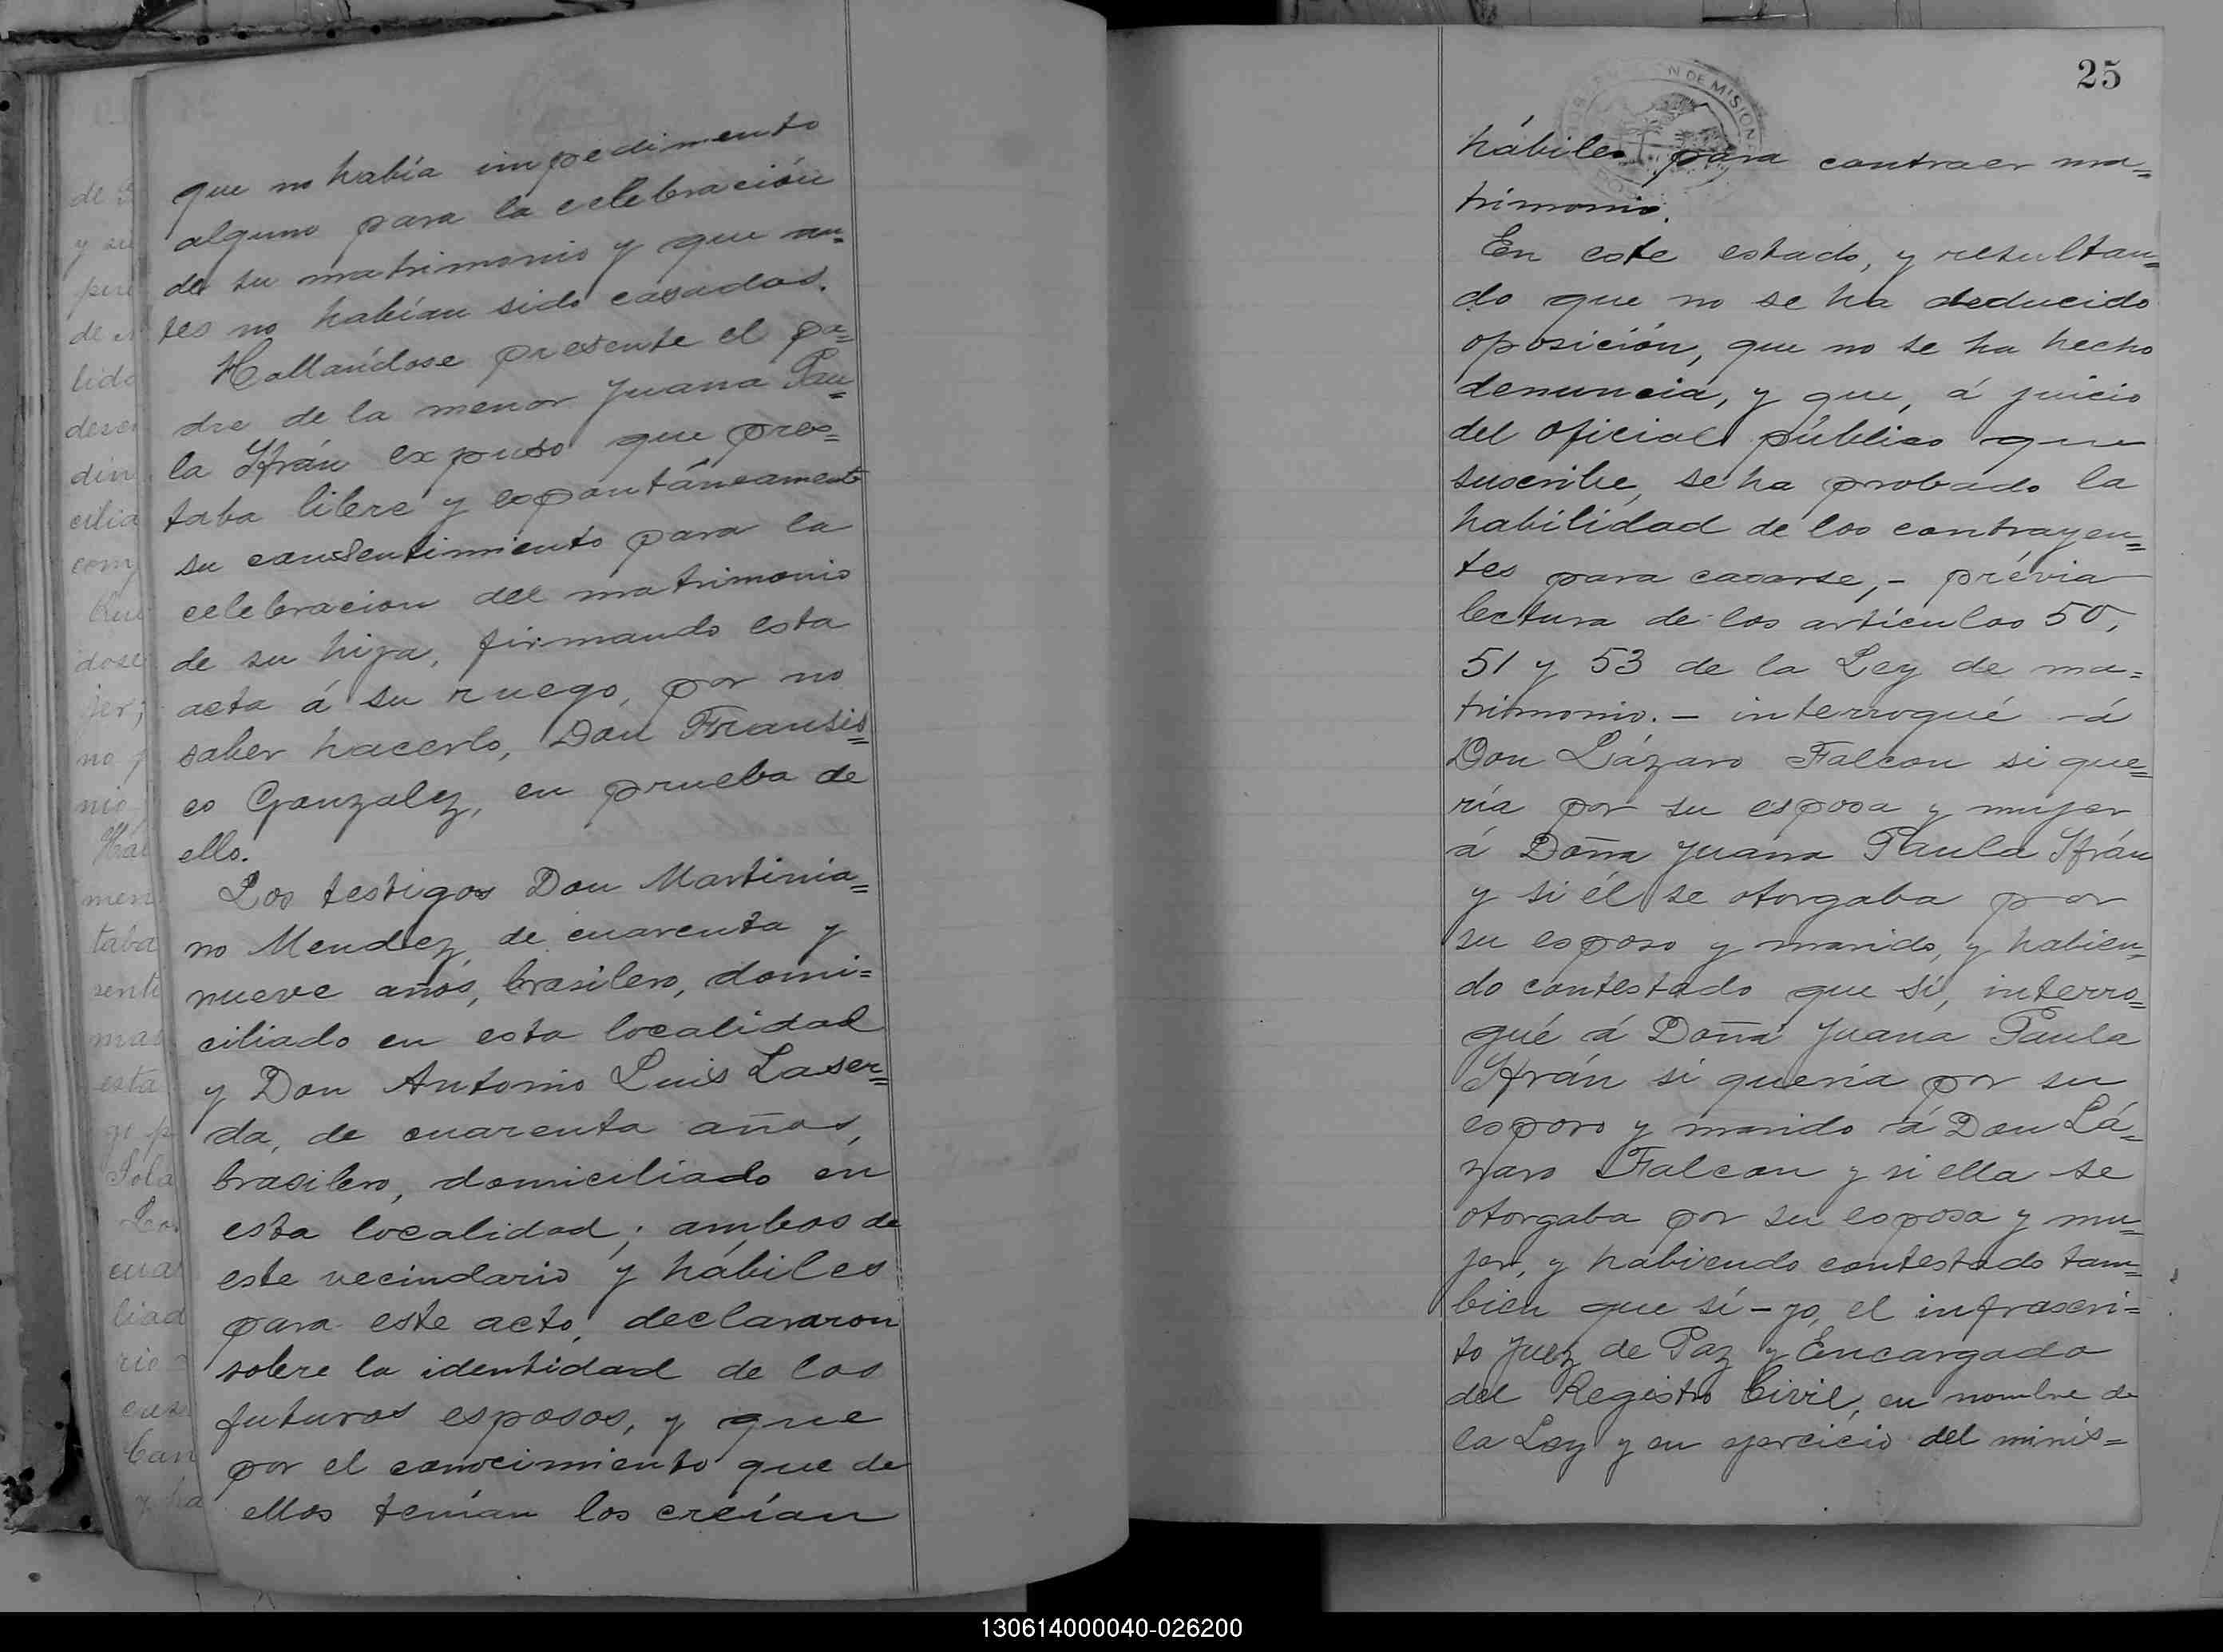 que no había impedimento
alguno para la celebración
de su matrimonio y que an=
tes no habían sido casados.
Hallándose presente el pa=
dre de la menor Juana Pau=
la Ifrán expuso que pres=
taba libre y espontáneamente
su consentimiento para la
celebracion del matrimonio
de su hija, firmando esta
acta á su ruego, por no
saber hacerlo, Don Fransis=
co Gonzalez, en prueba de
ello.
Los testigos Don Martinia=
no Mendez, de cuarenta y
nueve años, brasilero, domi=
ciliado en esta localidad
y Don Antonio Luis Laser=
da, de cuarenta años,
brasilero, domiciliado en
esta localidad; ambos de
este vecindario y hábiles
para este acto, declararon
sobre la identidad de los
futuros esposos, y que
por el conocimiento que de
ellos tenían los creían
25
N DE MISION
hábiles para contraer ma=
trimonio.
En este estado, y resultan=
do que no se ha deducido
oposición, que no se ha hecho
denuncia, y que, á juicio
del oficial público que
suscribe, se ha probado la
habilidad de los contrayen=
tes para casarse, - prévia
lectura de los artículos 50,
51 y 53 de la Ley de ma=
trimonio. - interrogué á
Don Lázaro Falcon si que=
ría por su esposa y mujer
á Doña Juana Paula Ifrán
y si él se otorgaba por
su esposo y marido, y habien=
do contestado que sí, interro=
gué á Doña Juana Paula
Ifrán si quería por su
esposo y marido á Don Lá=
zaro Falcon y si ella se
otorgaba por su esposa y mu=
jer, y habiendo contestado tam=
bien que sí - yo, el infrascri=
to Juez de Paz y Encargado
del Registro Civil, en nombre de
la Ley y en ejercicio del minis=
130614000040-026200